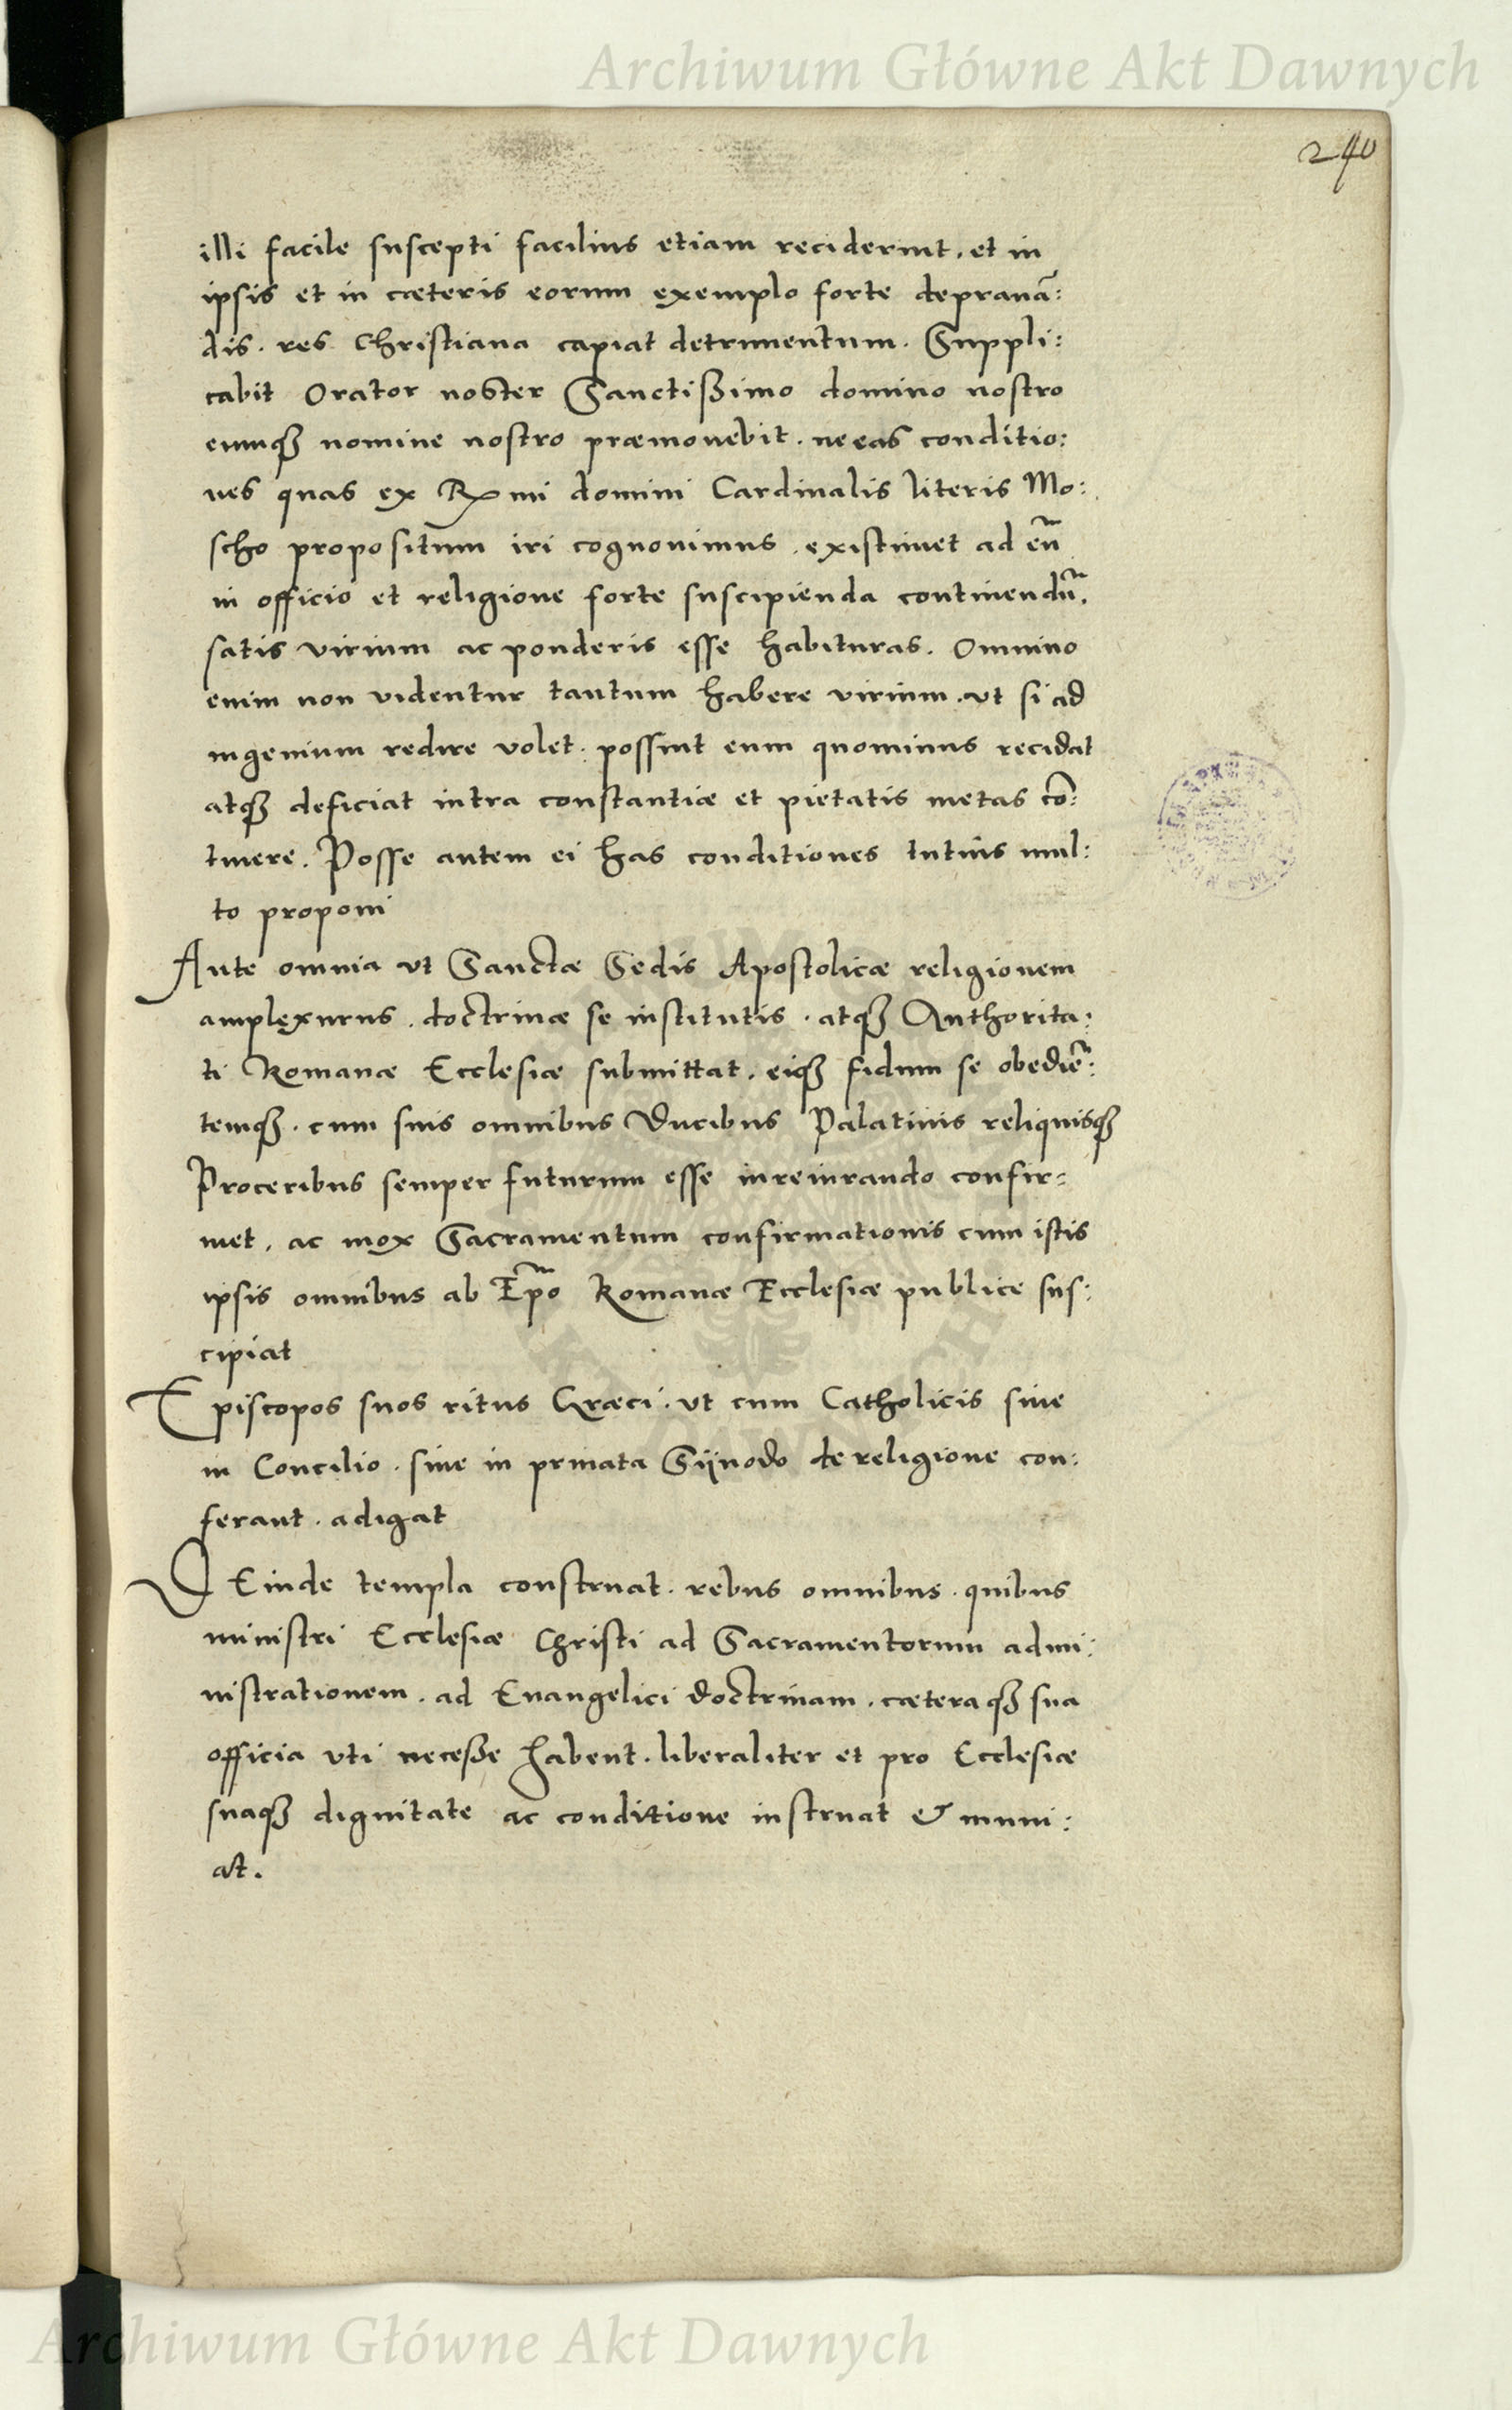 Archiwum Główne Akt Dawnych
240
illi facile suscepti facilius etiam reciderint. et in
ipsis et in cæteris eorum exemplo forte deprauā:
dis. res Christiana capiat detrimentum. Suppli:
cabit Orator noster Sanctißimo domino nostro
eumq₃ nomine nostro præmonebit. ne eas conditio:
nes quas ex R mi domini Cardinalis literis Mo:
scho propositum iri cognouimus. existimet ad eū
in officio et religione forte suscipienda continendū.
satis virium ac ponderis esse habituras. Omnino
enim non videntur tantum habere virium. vt si ad
ingenium redire volet. possint eum quominus recidat
atq₃ deficiat intra constantiæ et pietatis metas cō:
tinere. Posse autem ei has conditiones tutius mul:
to proponi
Ante omnia vt Sanctæ Sedis Apostolicæ religionem
amplexurus. doctrinæ se institutis. atq₃ Authorita:
ti Romanæ Ecclesiæ submittat. eiq₃ fidum se obediē:
temq₃. cum suis omnibus Ducibus Palatinis reliquisq₃
Proceribus semper futurum esse iureiurando confir:
met. ac mox Sacramentum confirmationis cum istis
ipsis omnibus ab Ep̄o Romanæ Ecclesiæ publice sus:
cipiat
Episcopos suos ritus Græci. vt cum Catholicis siue
in Concilio. siue in priuata Sijnodo de religione con:
ferant. adigat
DEinde templa construat. rebus omnibus. quibus
ministri Ecclesiæ Christi ad Sacramentorum admi:
nistrationem. ad Euangelici doctrinam. cæteraq₃ sua
officia vti neceße habent. liberaliter et pro Ecclesiæ
suaq₃ dignitate ac conditione instruat & muni:
at.
Archiwum Główne Akt Dawnych